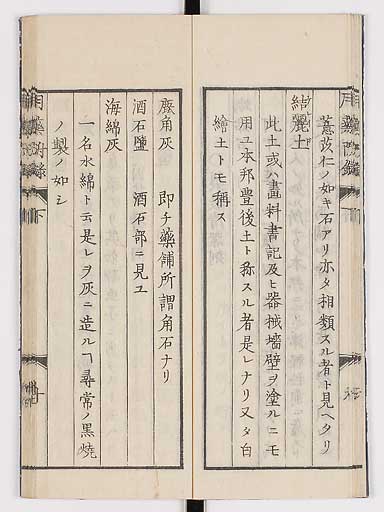 薏苡仁ノ如キ石アリ亦タ相類スル者ト見ヘタリ
結麗土
此土或ハ畵料書記及ヒ器械墻壁ヲ塗ルニモ
用ユ本邦豊後土ト称スル者是レナリ又タ白
繪土トモ稱ス
麋角灰 即チ藥舗所謂角石ナリ
酒石鹽 酒石部ニ見ユ
海綿灰
一名水綿ト云是レヲ灰ニ造ルヿ尋常ノ黒燒
ノ製ノ如シ
用藥附錄 下